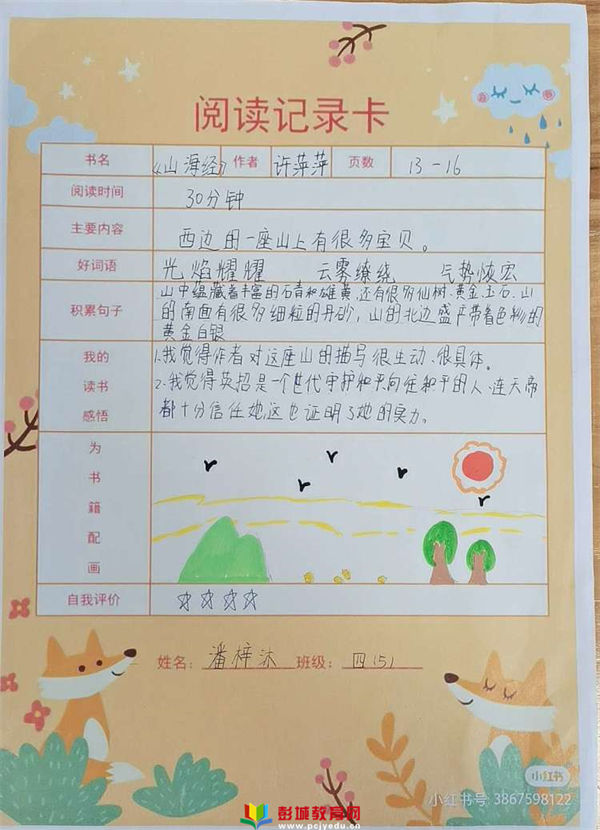 阅读记录卡
书名 《山海经》 作者 许萍萍 页数 13-16
阅读时间 30分钟
主要内容 西边的一座山上有很多宝贝。
好词语 光焰耀耀 云雾缭绕 气势恢宏
积累句子 山中蕴藏着丰富的石青和雄黄,还有很多仙树、黄金、玉石、山
的南面有很多细粒的丹砂,山的北边盛产带着色彩的
黄金白银
我的读书感悟 1.我觉得作者对这座山的描写很生动、很具体。
2.我觉得英招是一个世代守护和平向往和平的人.连天帝
都十分信任她,这也证明了她的实力。
为书籍配画
自我评价 ☆☆☆☆
姓名:潘梓沐 班级:四(5)
小红书
小红书号 3867598122
彭城教育网
www.pcjyedu.cn